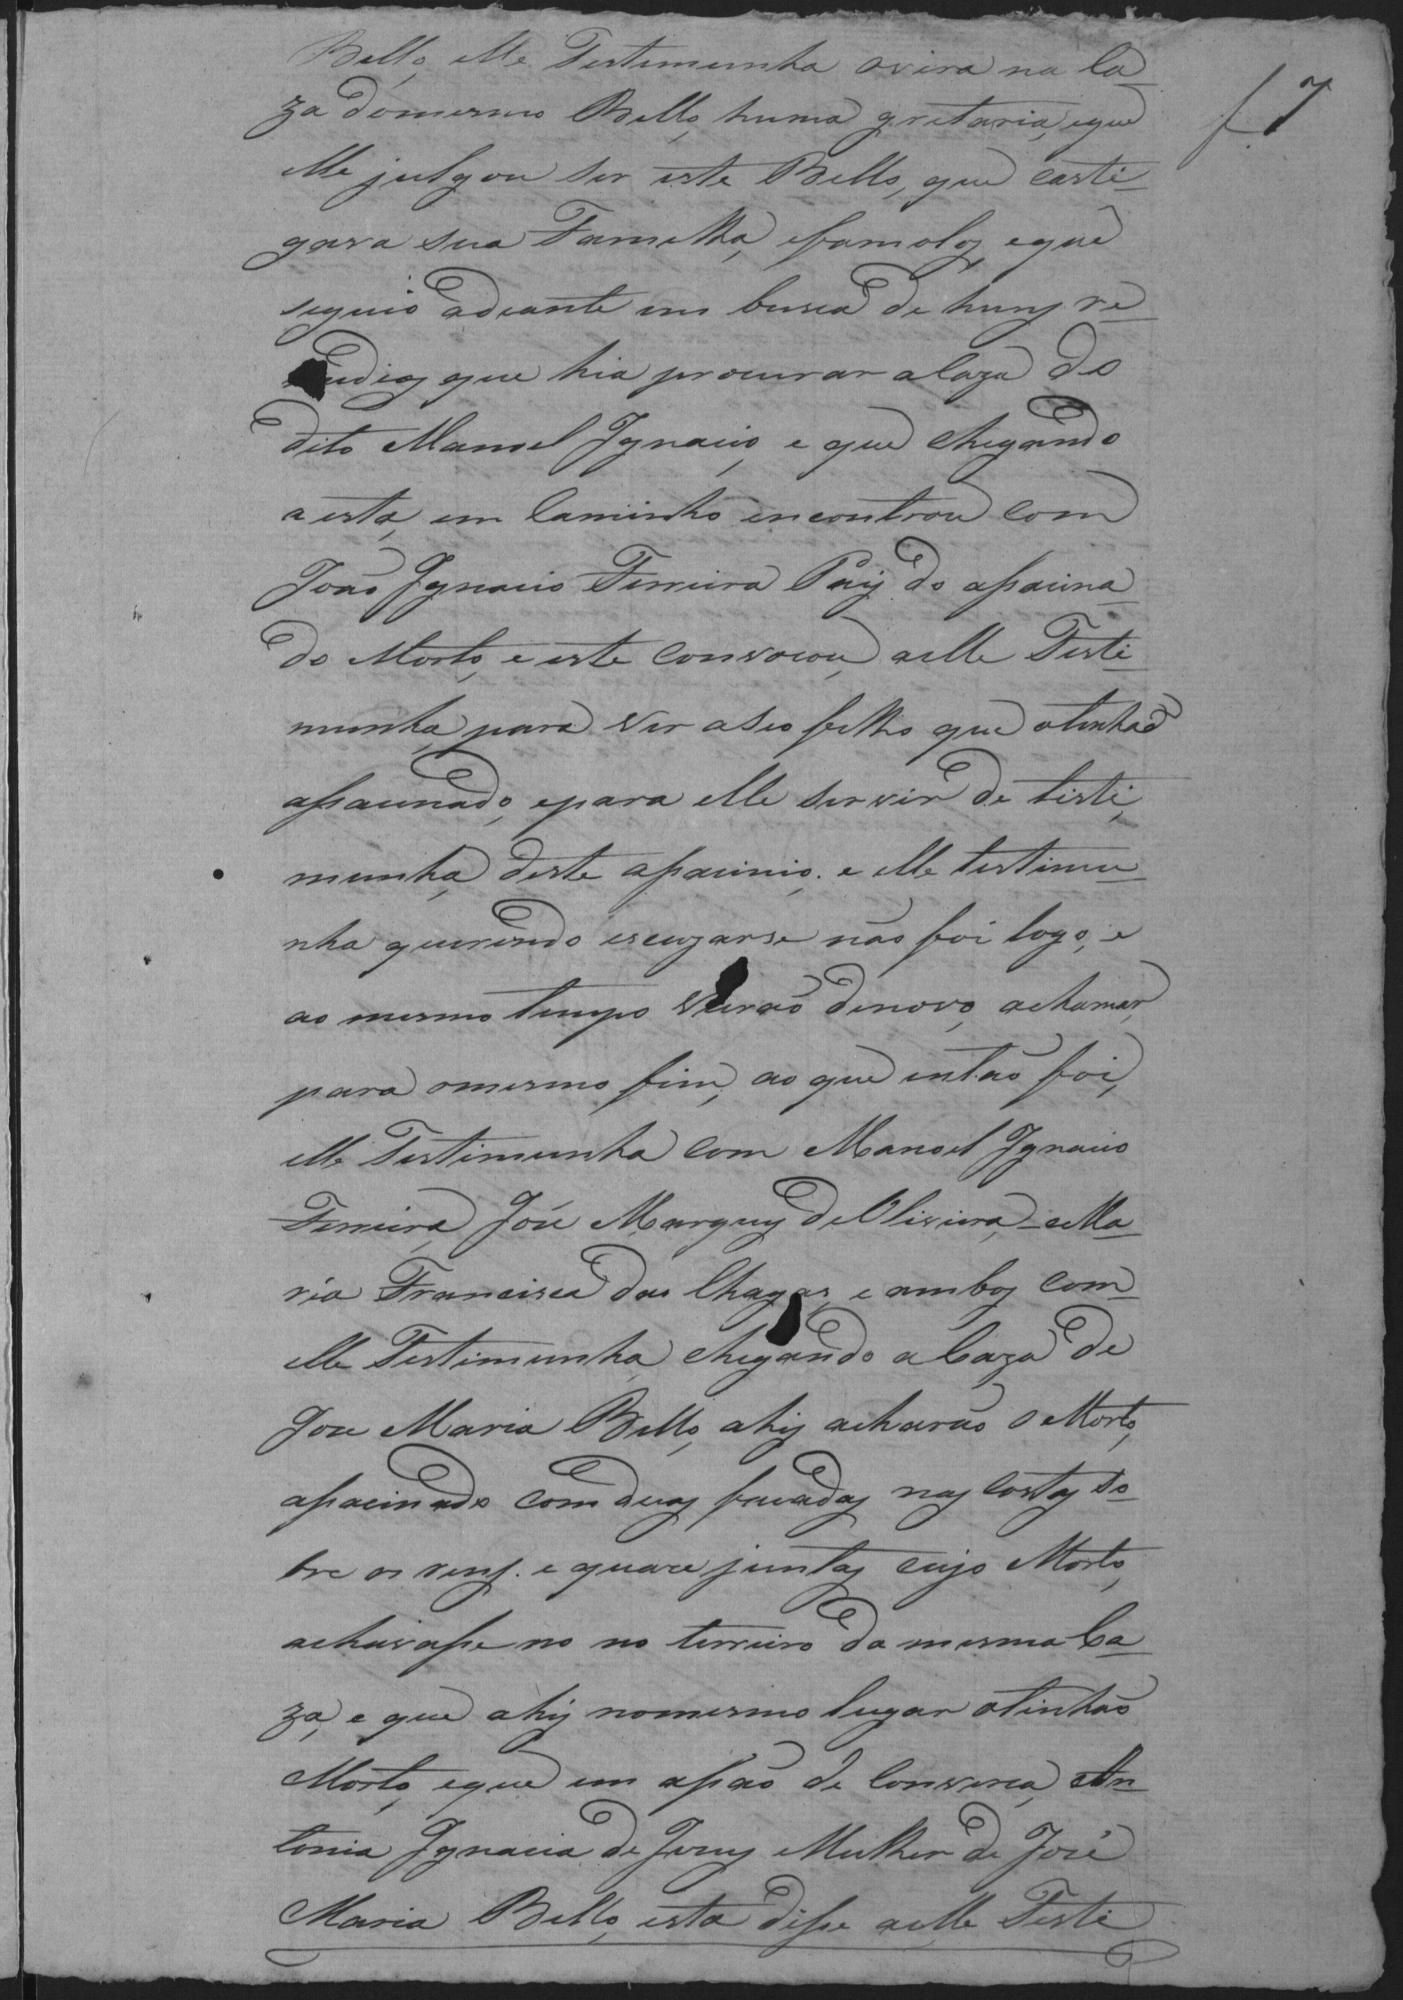 f 7
Bello, elle Testimunha ovira na Ca
za domesmo Bello, huma gritaria, eque
elle julgou ser este Bello, que casti-
gava sua Famelha, efamolos, eque
seguio adeante em busca de huns re-
medios que hia procurar a Caza do
dito Manoel Ignacio, e que chegando
a esta, em Caminho encontrou com
João Ignacio Ferreira Paij do apacina-
do Morto, e este convocou, aelle Testi
munha, para ver aseo filho que otinhaõ
assacinado, epara elle servir de testi,
munha, deste assacinio. e elle testimu-
nha querendo escuzarse não foi logo, e
ao mesmo tempo vierão denovo, achamar,
para omesmo fim, ao que então foi,
elle Testimunha com Manoel Ignacio
Ferreira, José Marques de Oliveira, eMa-
ria Francisca das Chagas, e ambos com
elle Testimunha, chegando a Caza de
Joze Maria Bello, ahij acharão o Morto,
assacinado com duas facadas nas costas so-
bre os rens. e quaze juntas cujo Morto,
achavasse no no terreiro da mesma Ca-
za, e que ahij nomesmo lugar otinhão
Morto, eque em assão de Converca, An-
tonia Ignacia de Jesus Mulher de José
Maria Bello, esta disse aelle Testi